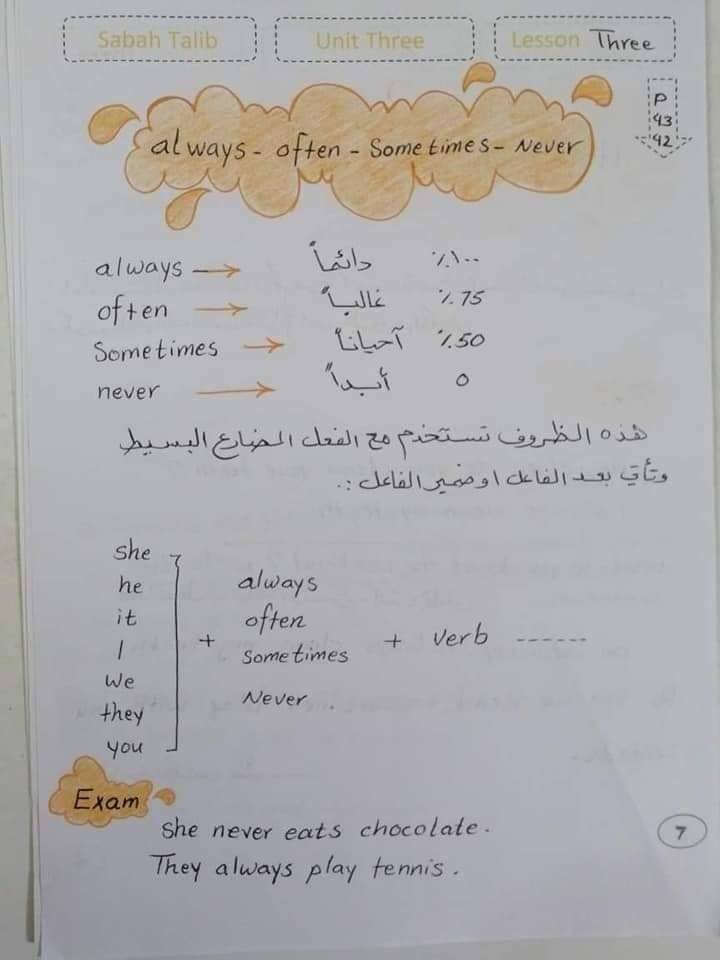 Sabah Talib Unit Three Lesson Three
P
43
42
always - often - Sometimes - Never
always → دائماً ٪١٠٠
often → غالباً ٪75
Sometimes → آحياناً ٪50
never → أبداً ٥
هذه الظروف تستخدم مع الفعل المضارع البسيط
وتأتي بعد الفاعل او ضمير الفاعل :.
she
he
it
I
we
they
you
+
always
often
Sometimes
Never
+ verb ------
Exam
She never eats chocolate.
They always play tennis.
7